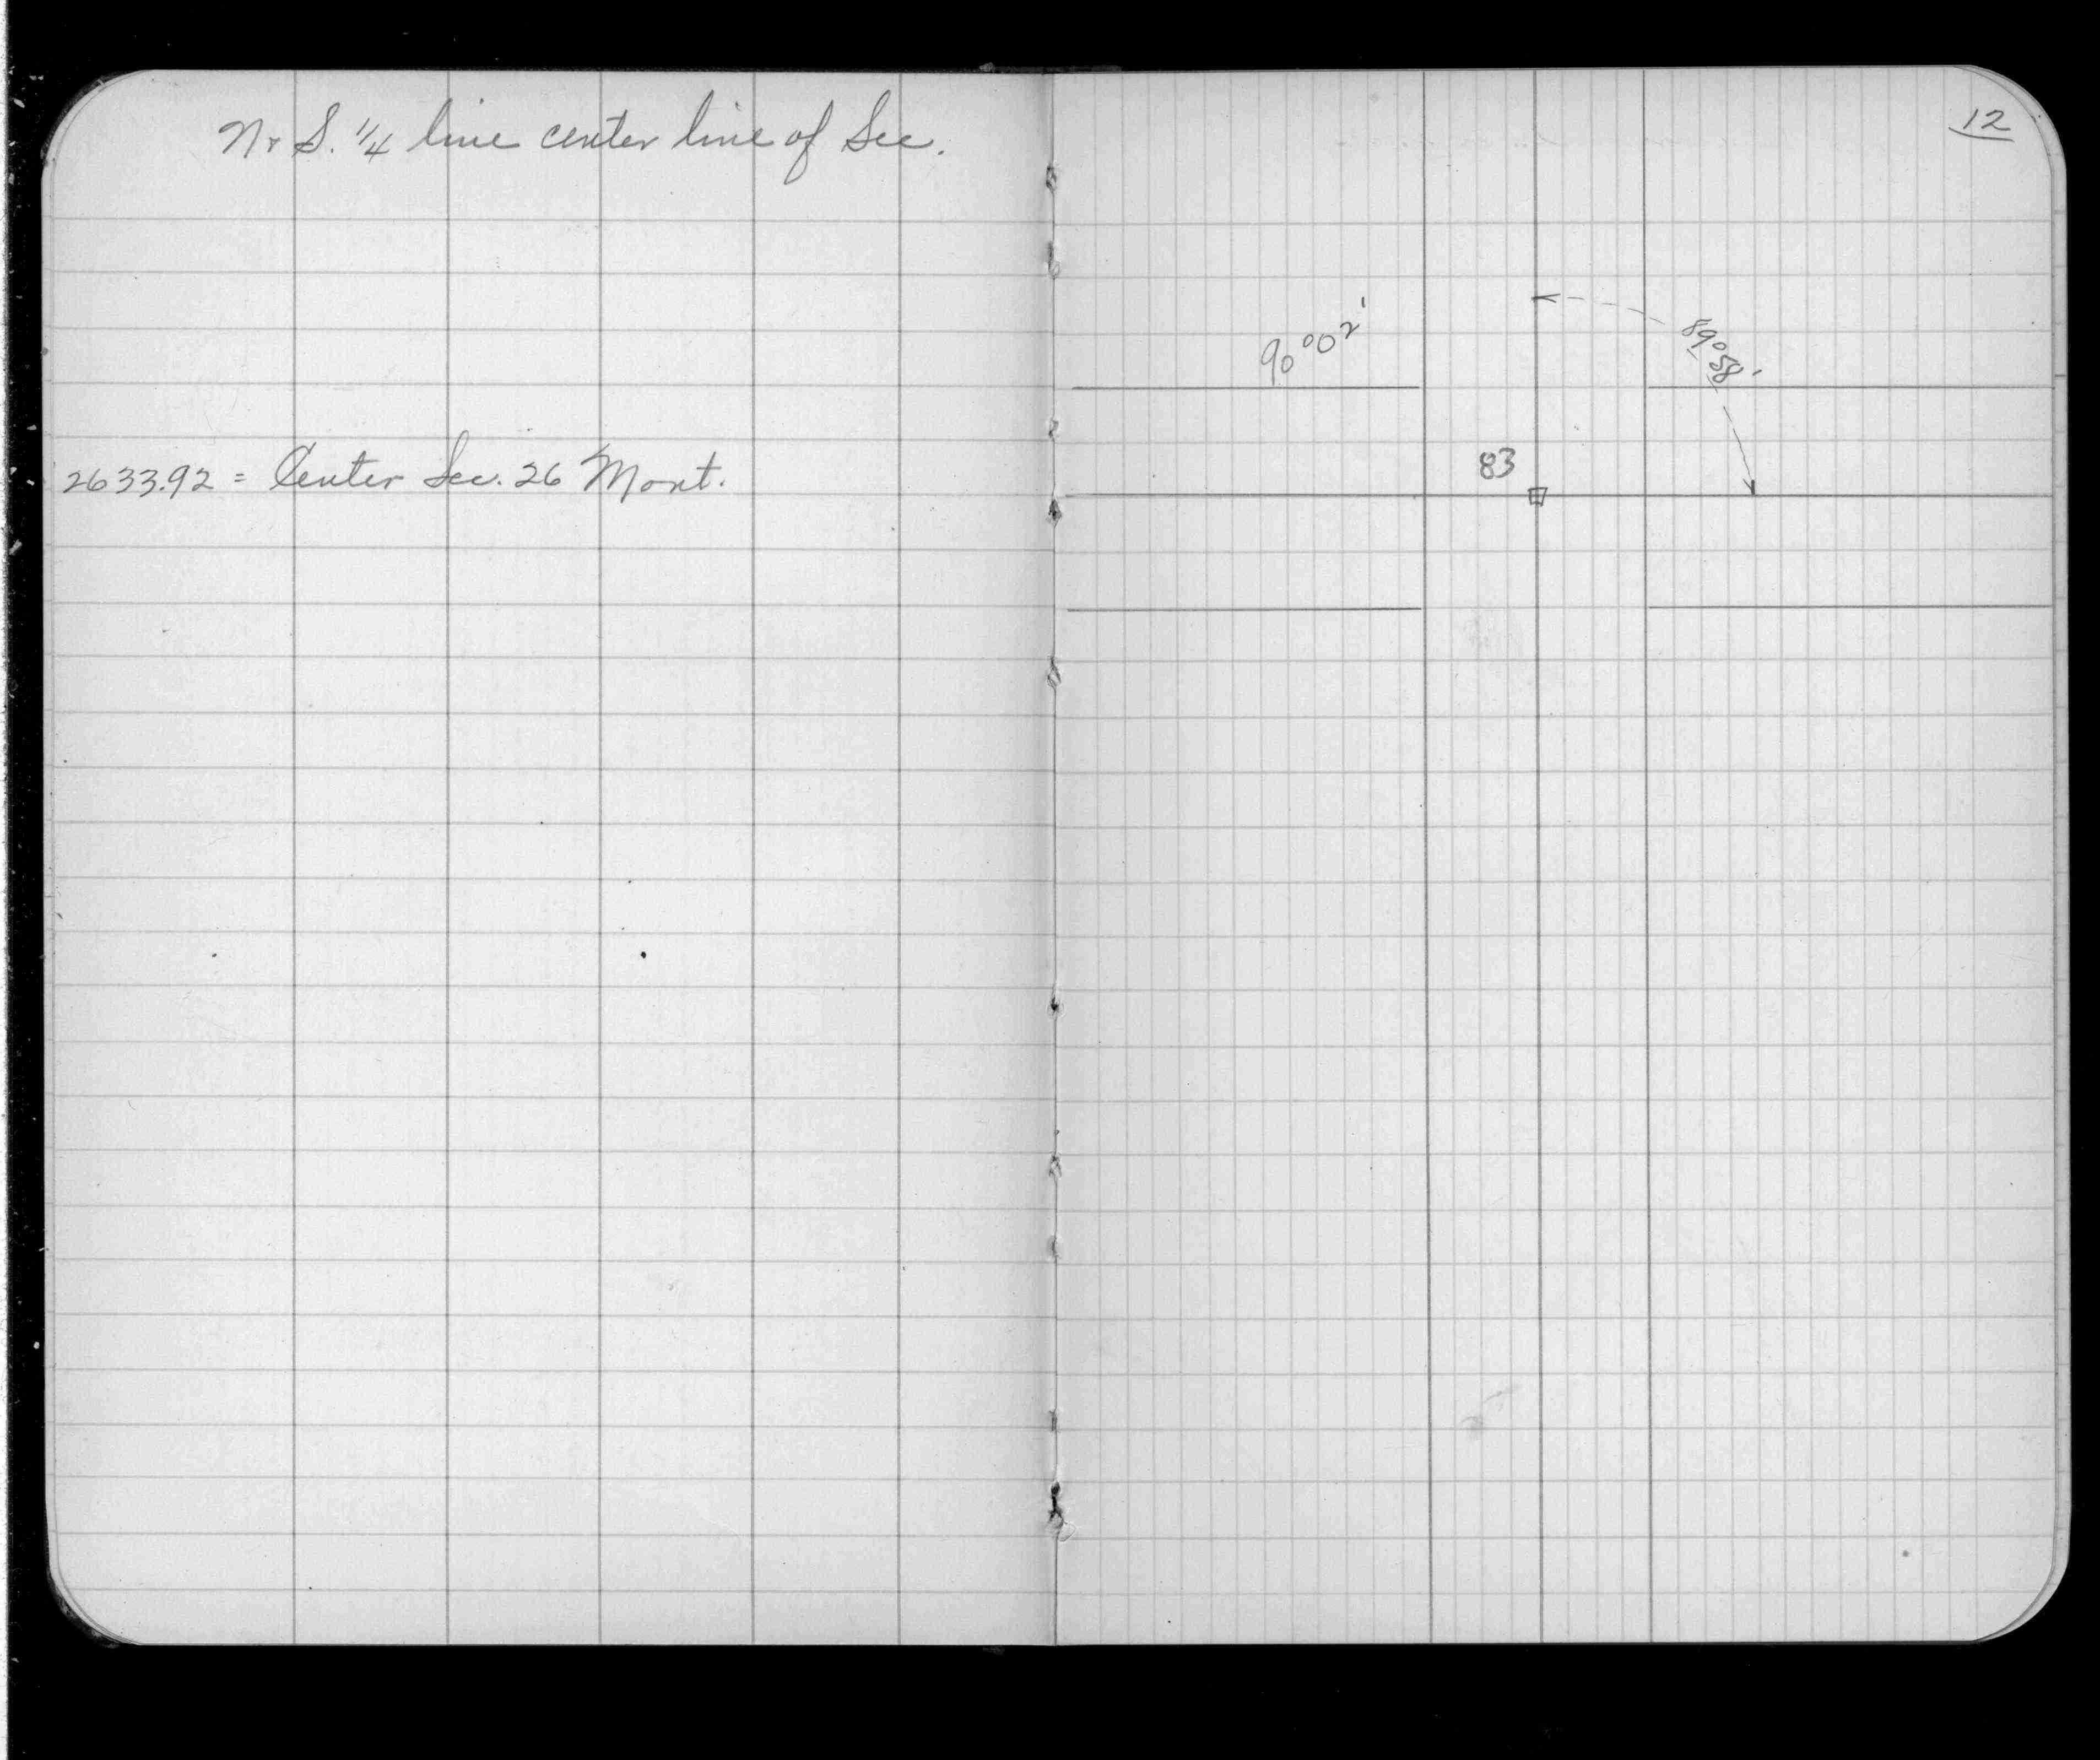 N & S. 1/4 line center line of Sec.
2633.92 = Center Sec. 26 Mont.
12
90°02'
89°58'
83